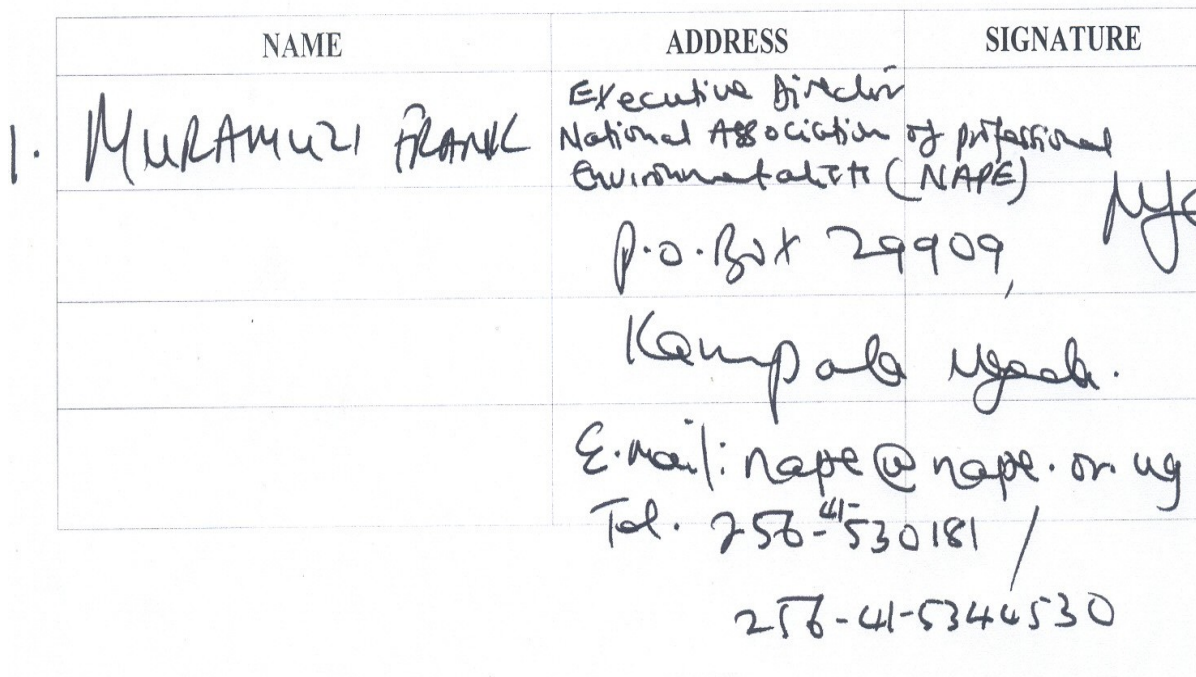 NAME ADDRESS SIGNATURE
Executive Director
1. MURAMUZI FRANK National Association of professional
Environmentalists (NAPE)
P.O. Box 29909,
Kampala Uganda.
E.mail: nape@nape.or.ug
Tel. 256-41-530181 /
256-41-5344530